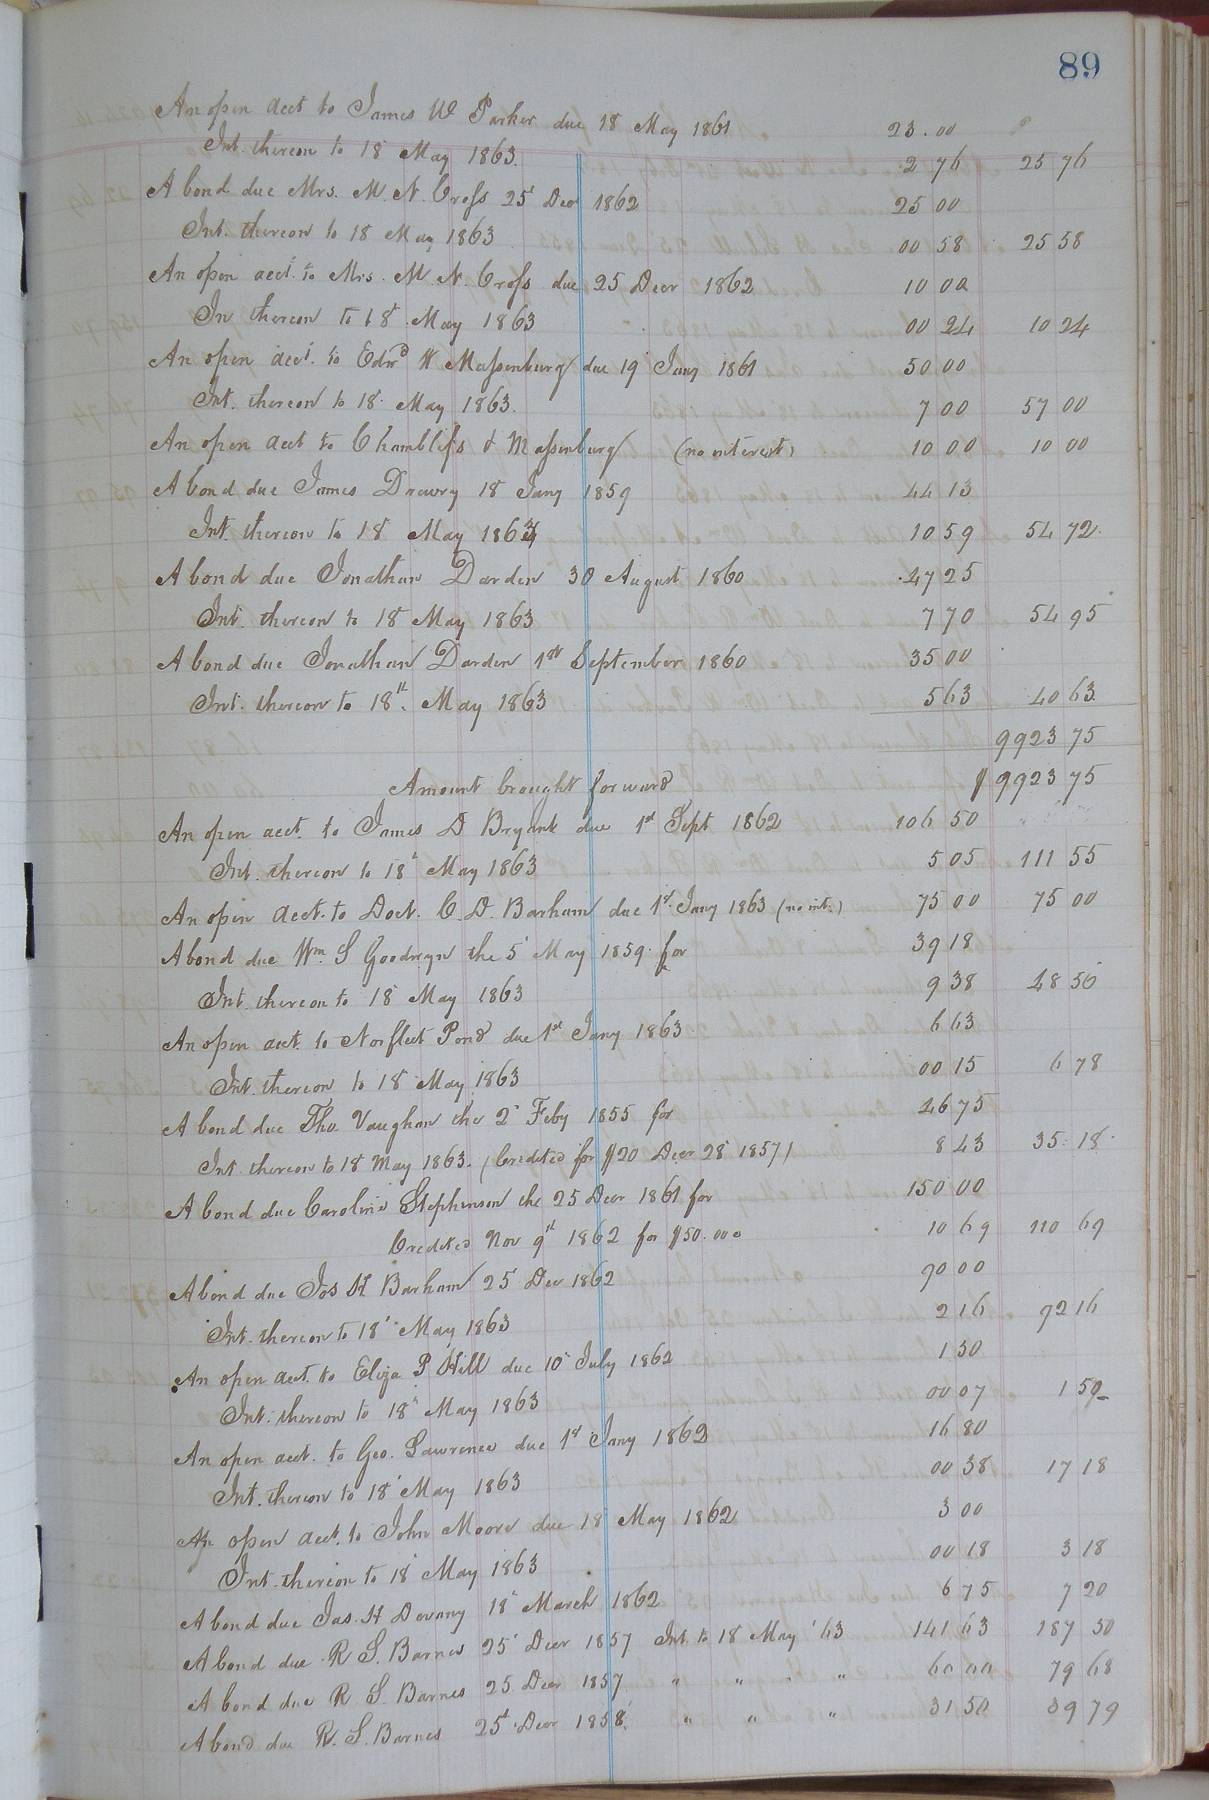 89
An open acct to James W Parker due 18 May 1861 23.00
Int. thereon to 18 May 1863. 2 76 25 76
A bond due Mrs. M. N. Cross 25 Decr 1862 25 00
Int. thereon to 18 May 1863 00 58 25 58
An open acct. to Mrs. M. N. Cross due 25 Decr 1862 10 00
In thereon to 18 May 1863 00 24 10 24
An open acct. to Edwd W Massenburg due 19 Jany 1861 50 00
Int. thereon to 18 May 1863. 7 00 57 00
An open acct to Chambliss & Massenburg (no interest) 10 00 10 00
A bond due James Drewry 18 Jany 1859 44 13
Int. thereon to 18 May 1863 10 59 54 72
A bond due Jonathan Darden 30 August 1860 47 25
Int. thereon to 18 May 1863 7 70 54 95
A bond due Jonathan Darden 1st September 1860 35 00
Int. thereon to 18th. May 1863 5 63 40 63
9923 75
Amount brought forward $ 9923 75
An open acct. to James D Bryant due 1st Sept 1862 106 50
Int. thereon to 18 May 1863 5 05 111 55
An open acct. to Doct. C. D. Barham due 1st Jany 1863 (no int.) 75 00 75 00
A bond due Wm S Goodwyn the 5 May 1859 for 39 18
Int. thereon to 18 May 1863 9 38 48 56
An open acct. to Norfleet Pond due 1st Jany 1863 6 63
Int. thereon to 18 May 1863 00 15 6 78
A bond due Tho. Vaughan the 2 Feby 1855 for 46 75
Int. thereon to 18 May 1863. (Credited for $20 Decr 28 1857) 8 43 35 18
A bond due Caroline Stephenson the 25 Decr 1861 for 150 00
Credited Nov 9th 1862 for $50.00 10 69 110 69
A bond due Jos H Barham 25 Dec 1862 90 00
Int. thereon to 18 May 1863 2 16 92 16
An open acct. to Eliza P Hill due 10 July 1862 1 50
Int. thereon to 18 May 1863 00 07 1 59
An open acct. to Geo. Lawrence due 1st Jany 1862 16 80
Int. thereon to 18 May 1863 00 38 17 18
An open acct. to John Moore due 18 May 1862 3 00
Int. thereon to 18 May 1863 00 18 3 18
A bond due Jas. H Devany 18 March 1862 6 75 7 20
A bond due R S. Barnes 25 Decr 1857 Int. to 18 May '63 141 63 187 50
A bond due R S. Barnes 25 Decr 1857 " " " 60 00 79 68
A bond due R. S. Barnes 25th Decr 1858 " " " 31 50 39 79